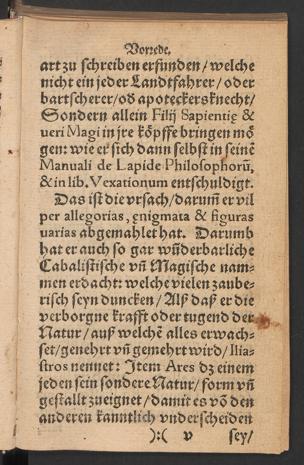 Vorrede.
art zu schreiben erfunden / welche
nicht ein jeder Landtfahrer / oder
bartscherer / oď apoteckersknecht /
Sondern allein Filij Sapientię &
ueri Magi in jre köpffe bringen mö
gen: wie er sich dann selbst in seinē
Manuali de Lapide Philosophorū,
& in lib. Vexationum entschuldigt.
Das ist die vrsach / darum̄ er vil
per allegorias, ęnigmata & figuras
uarias abgemahlet hat. Darumb
hat er auch so gar wūderbarliche
Cabalistische vn̄ Magische nam-
men erdacht: welche vielen zaube-
risch seyn duncken / Alß daß er die
verborgne krafft oder tugend der
Natur / auß welchē alles erwach-
set / genehrt vn̄ gemehrt wird / Ilia-
stros nennet: Item Ares dz einem
jeden sein sondere Natur / form vn̄
gestallt zueignet / damit es vō den
anderen kanntlich vnderscheiden
):( v sey /